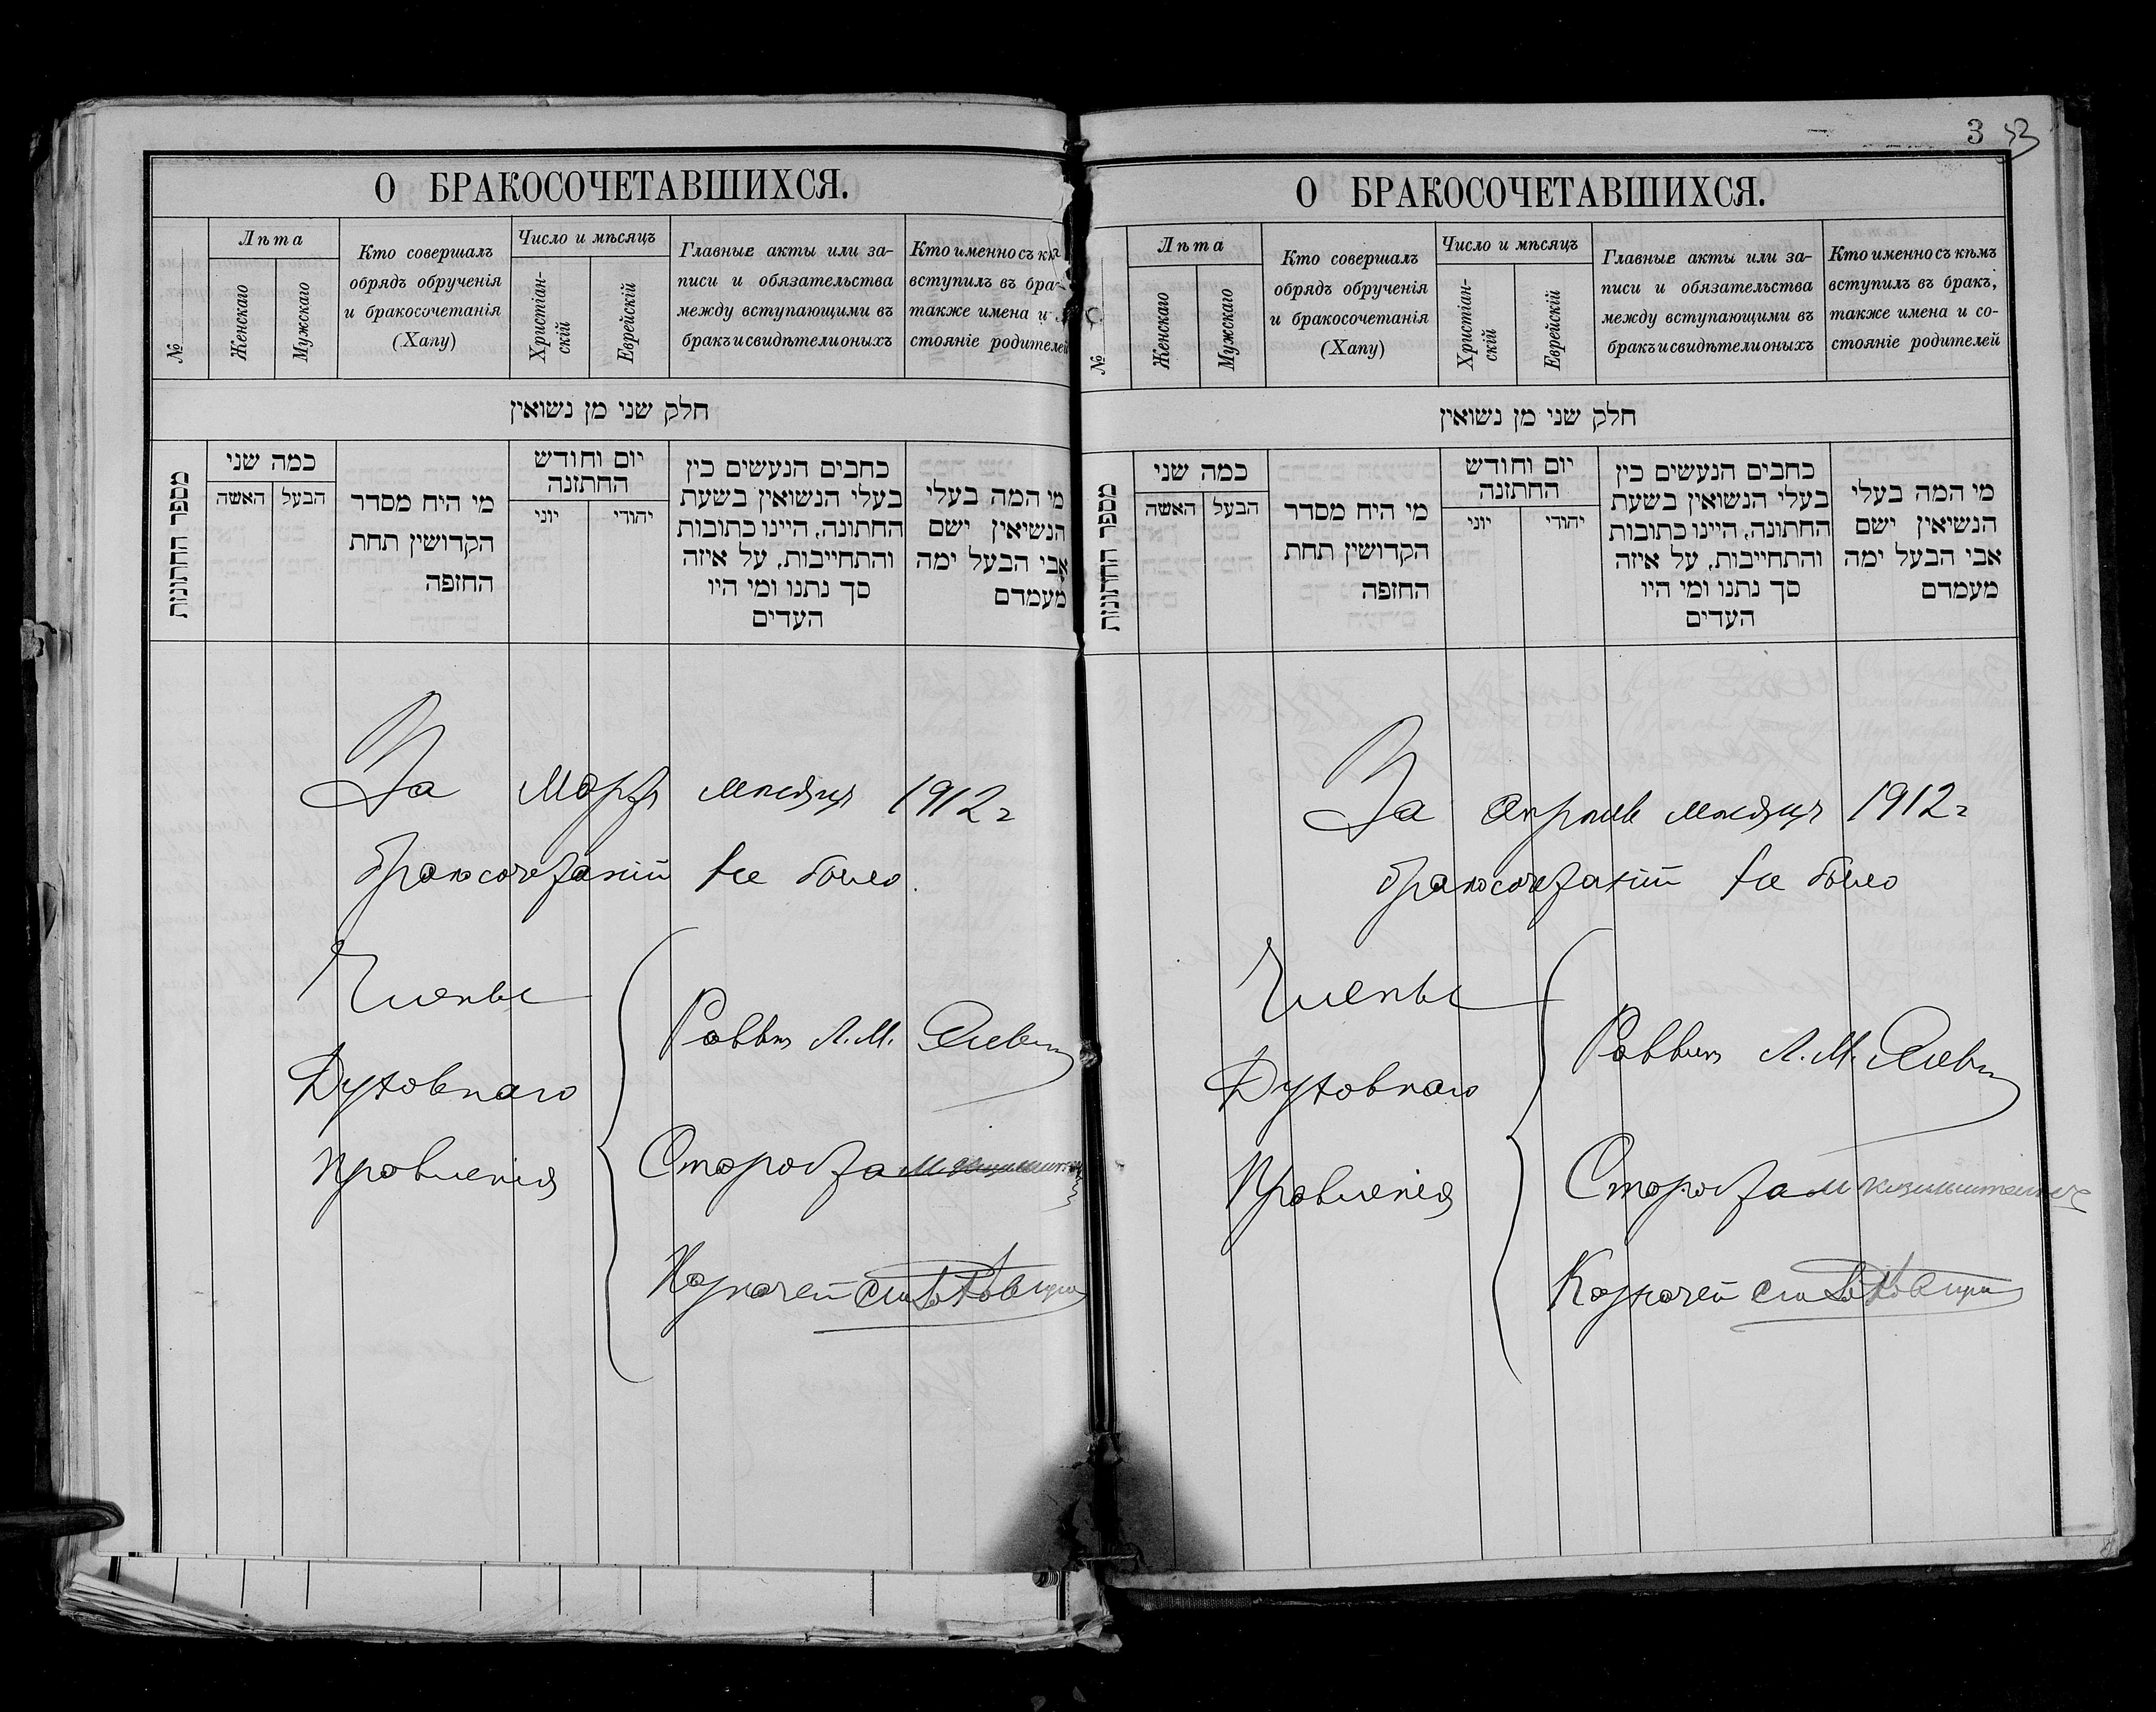 О БРАКОСОЧЕТАВШИХСЯ.
№
Лѣта
Женскаго
Мужскаго
Кто совершалъ
обрядъ обрученія
и бракосочетанія
(Хапу)
Число и мѣсяцъ
Христіан-
скій
Еврейскій
Главные акты или за-
писи и обязательства
между вступающими въ
бракъ и свидѣтели оныхъ
Кто именно съ
вступилъ въ бра
также имена и
стояніе родителей
חלק שני מן נשואין
מספר החתונות
כמה שני
הבעל
האשה
מי היח מסדר
הקדושין תחת
החזפה
יום וחודש
החתזנה
יהודי
יוני
כחבים הנעשים כין
בעלי הנשואין בשעת
החתונה, היינו כתובות
והתחייבות, על איזה
סך נתנו ומי היו
העדים
מי המה בעלי
הנשיאין ישם
אבי הבעל ימה
מעמדם
За Мартъ мѣсяцъ 1912 г
бракосочетаній не было.
Члены
Духовнаго
Правленія
Раввин Л. М.
Староста
Казначей
3
О БРАКОСОЧЕТАВШИХСЯ.
№
Лѣта
Женскаго
Мужскаго
Кто совершалъ
обрядъ обрученія
и бракосочетанія
(Хапу)
Число и мѣсяцъ
Христіан-
скій
Еврейскій
Главные акты или за-
писи и обязательства
между вступающими въ
бракъ и свидѣтели оныхъ
Кто именно съ кѣмъ
вступилъ въ бракъ,
также имена и со-
стояніе родителей
חלק שני מן נשואין
מספר החתונות
כמה שני
הבעל
האשה
מי היח מסדר
הקדושין תחת
החזפה
יום וחודש
החתזנה
יהודי
יוני
כחבים הנעשים כין
בעלי הנשואין בשעת
החתונה, היינו כתובות
והתחייבות, על איזה
סך נתנו ומי היו
העדים
מי המה בעלי
הנשיאין ישם
אבי הבעל ימה
מעמדם
За Апрѣль мѣсяцъ 1912 г
бракосочетаній не было
Члены
Духовнаго
Правленія
Раввин Л. М.
Староста
Казначей